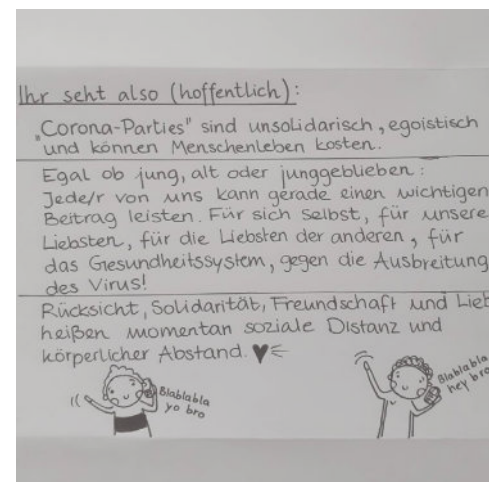 Ihr seht also (hoffentlich):
„Corona-Parties" sind unsolidarisch, egoistisch
und können Menschenleben kosten.
Egal ob jung, alt oder junggeblieben:
Jede/r von uns kann gerade einen wichtigen
Beitrag leisten. Für sich selbst, für unsere
Liebsten, für die Liebsten der anderen, für
das Gesundheitssystem, gegen die Ausbreitung
des Virus!
Rücksicht, Solidarität, Freundschaft und Lieb
heißen momentan soziale Distanz und
körperlicher Abstand.
Blablabla
yo bro
Blablabla
hey bro